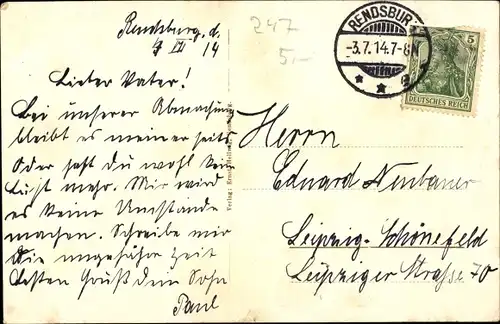 Rendsburg, d.
3 VII 14
247
5,-
RENDSBURG
-3.7.14.7-8N
* * a
5
DEUTSCHES REICH
Lieber Vater!
Bei unserer Abmachung
bleibt es meinerseits
Oder hast du wohl kein
Lust mehr. Mir wird
es keine Umstände
machen. Schreibe mir
die ungefähre Zeit
Besten Gruß dein Sohn
Paul
Verlag: Ernst
Herrn
Eduard Neubauer
Leipzig-Schönefeld
Leipziger Strasse 70